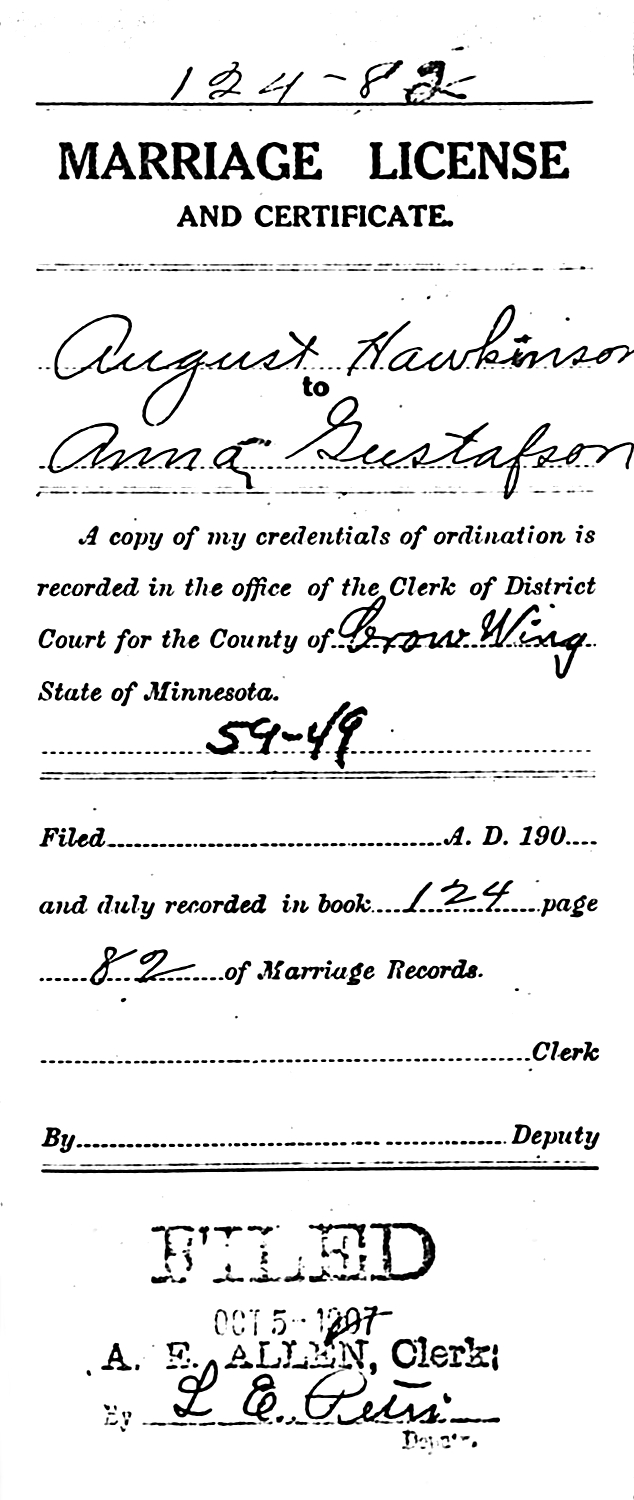 124-82
MARRIAGE LICENSE
AND CERTIFICATE.
August Hawkinson
to
Anna Gustafson
A copy of my credentials of ordination is
recorded in the office of the Clerk of District
Court for the County of Crow Wing
State of Minnesota.
59-49
Filed A. D. 190
and duly recorded in book 124 page
82 of Marriage Records.
Clerk
By Deputy
FILED
OCT 5-
A. E. ALLEN, Clerk;
By L. E.
Deputy.